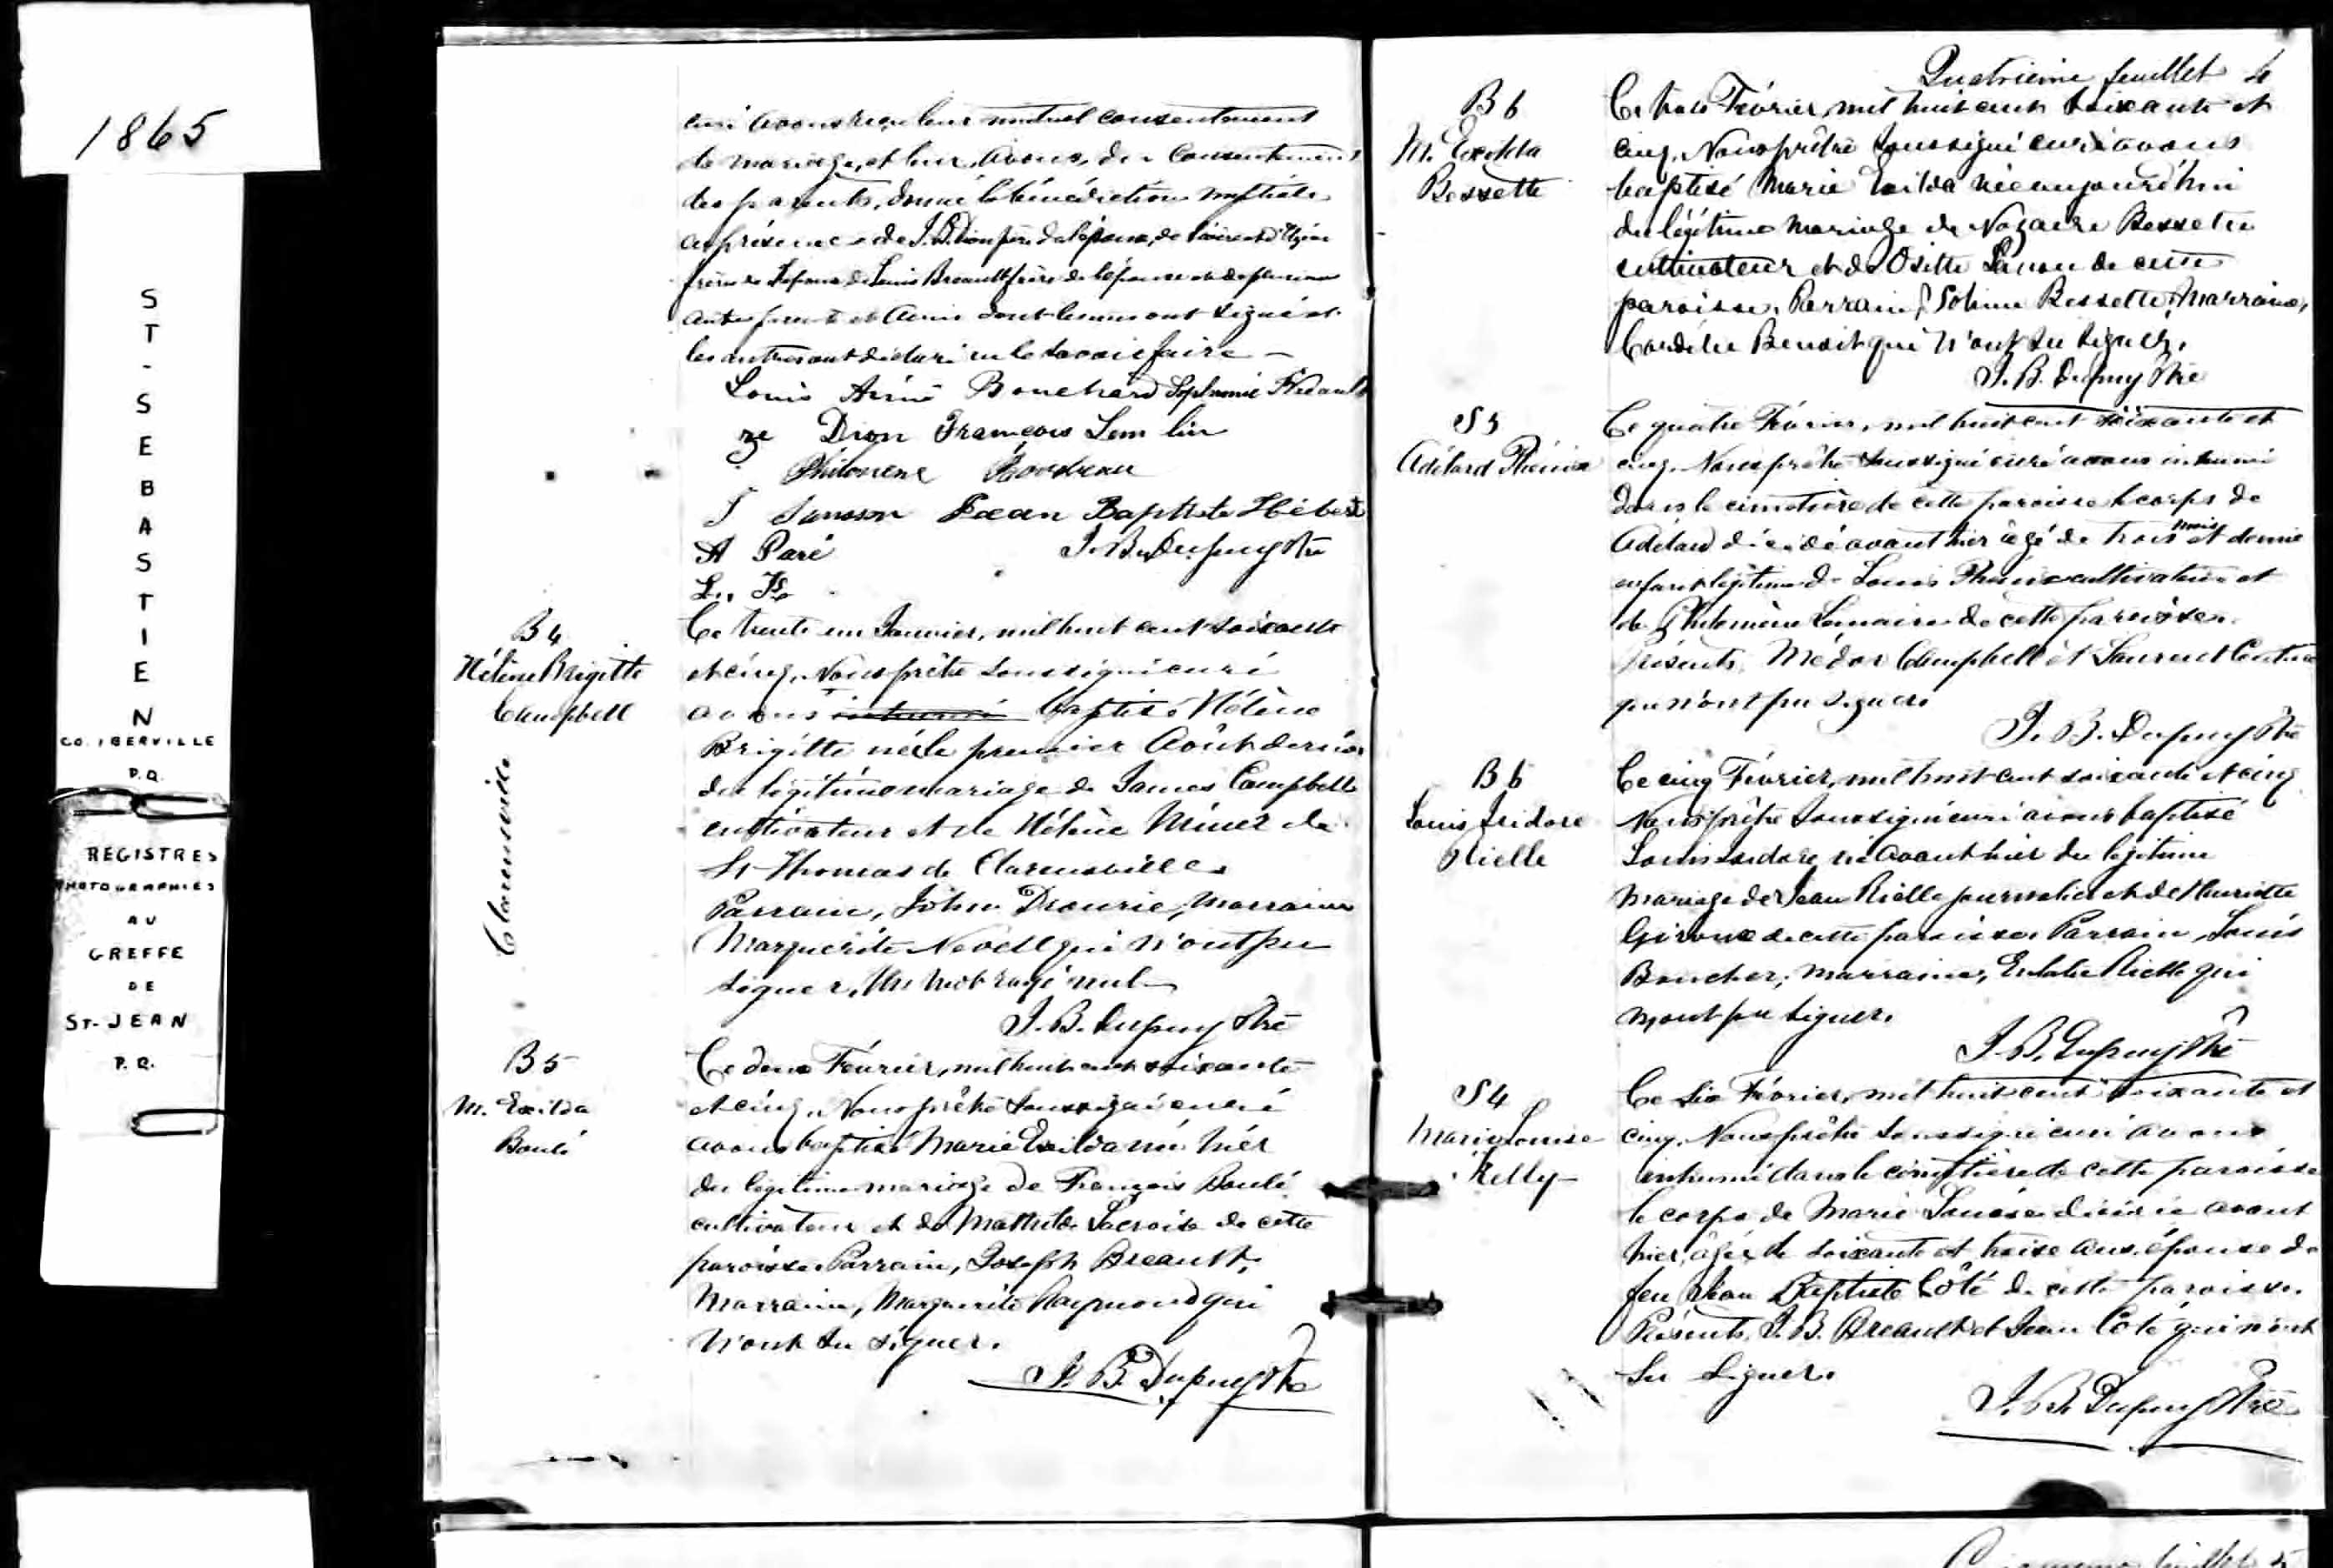 1865
ST-SEBASTIEN
CO. IBERVILLE
P.Q.
REGISTRES
PHOTOGRAPHIÉS
AU
GREFFE
DE
ST-JEAN
P.Q.
curé avons reçu leur mutuel consentement
de mariage, et leur avons, du consentement
des parents, donné la bénédiction nuptiale
en présence de J. B. Dion père de l'époux, de
frère de l'époux de Louis Breault frère de l'épouse et de plusieurs
autres parents et amis dont les uns ont signé et
les autres ont déclaré ne le savoir faire –
Louis Aimé Bouchard Sophronie Breault
Dion François Lem lin
Philomene Bordeau
J Samson Jean Baptiste Hébert
A Paré J. B. Dupuy Ptre
B 4
Hélène Brigitte
Campbell
Clarenceville
Ce trente un Janvier, mil huit cent soixante
et cinq, Nous prêtre soussigné curé
avons inhumé baptisé Hélène
Brigitte née le premier Août dernier
du légitime mariage de James Campbell
cultivateur et de Hélène Miner de
St Thomas de Clarenceville
Parrain, John Drourie, Marraine
Marguerite Nevell qui n'ont pu
signer, Un mot rayé nul
J. B. Dupuy Ptre
B 5
M. Exilda
Boulé
Ce deux Février, mil huit cent soixante
et cinq, Nous prêtre soussigné curé
avons baptisé Marie Exilda née hier
du légitime mariage de François Boulé
cultivateur et de Mathilde Lacroix de cette
paroisse Parrain, Joseph Breault,
Marraine, Marguerite Raymond qui
n'ont su signer.
J. B. Dupuy Ptre
Quatrième feuillet 4
B 6
M. Exilda
Bessette
Ce trois Février, mil huit cent soixante et
cinq, Nous prêtre soussigné curé avons
baptisé Marie Exilda née aujourd'hui
du légitime mariage de Nazaire Bessette
cultivateur et de Osite Lanou de cette
paroisse, Parrain, Solime Bessette, Marraine,
Cordélie Benoit qui n'ont su signer.
J. B. Dupuy Ptre
S 3
Adélard Phénix
Ce quatre Février, mil huit cent soixante et
cinq, Nous prêtre soussigné curé avons inhumé
dans le cimetière de cette paroisse le corps de
Adélard décédé avant hier âgé de trois mois et demie
enfant légitime de Louis Phenix cultivateur et
de Philomène Lemaire de cette paroisse.
Présents, Médor Campbell et Laurent Couture
qui n'ont pu signer
J. B. Dupuy Ptre
B 6
Louis Isidore
Rielle
Ce cinq Février, mil huit cent soixante et cinq
Nous prêtre soussigné curé avons baptisé
Louis Isidore, né avant hier du légitime
mariage de Jean Rielle journalier et de Henriette
Giroux de cette paroisse Parrain, Louis
Boucher, marraine, Eulalie Rielle qui
n'ont pu signer.
J. B. Dupuy Ptre
S 4
Marie Louise
Kelly
Ce Six Février, mil huit cent soixante et
cinq, Nous prêtre soussigné curé avons
inhumé dans le cimetière de cette paroisse
le corps de Marie Louise décédée avant
hier, âgée de soixante et treize ans, épouse de
feu Jean Baptiste Côté de cette paroisse.
Présents, J. B. Breault et Jean Côté qui n'ont
su signer.
J. B. Dupuy Ptre